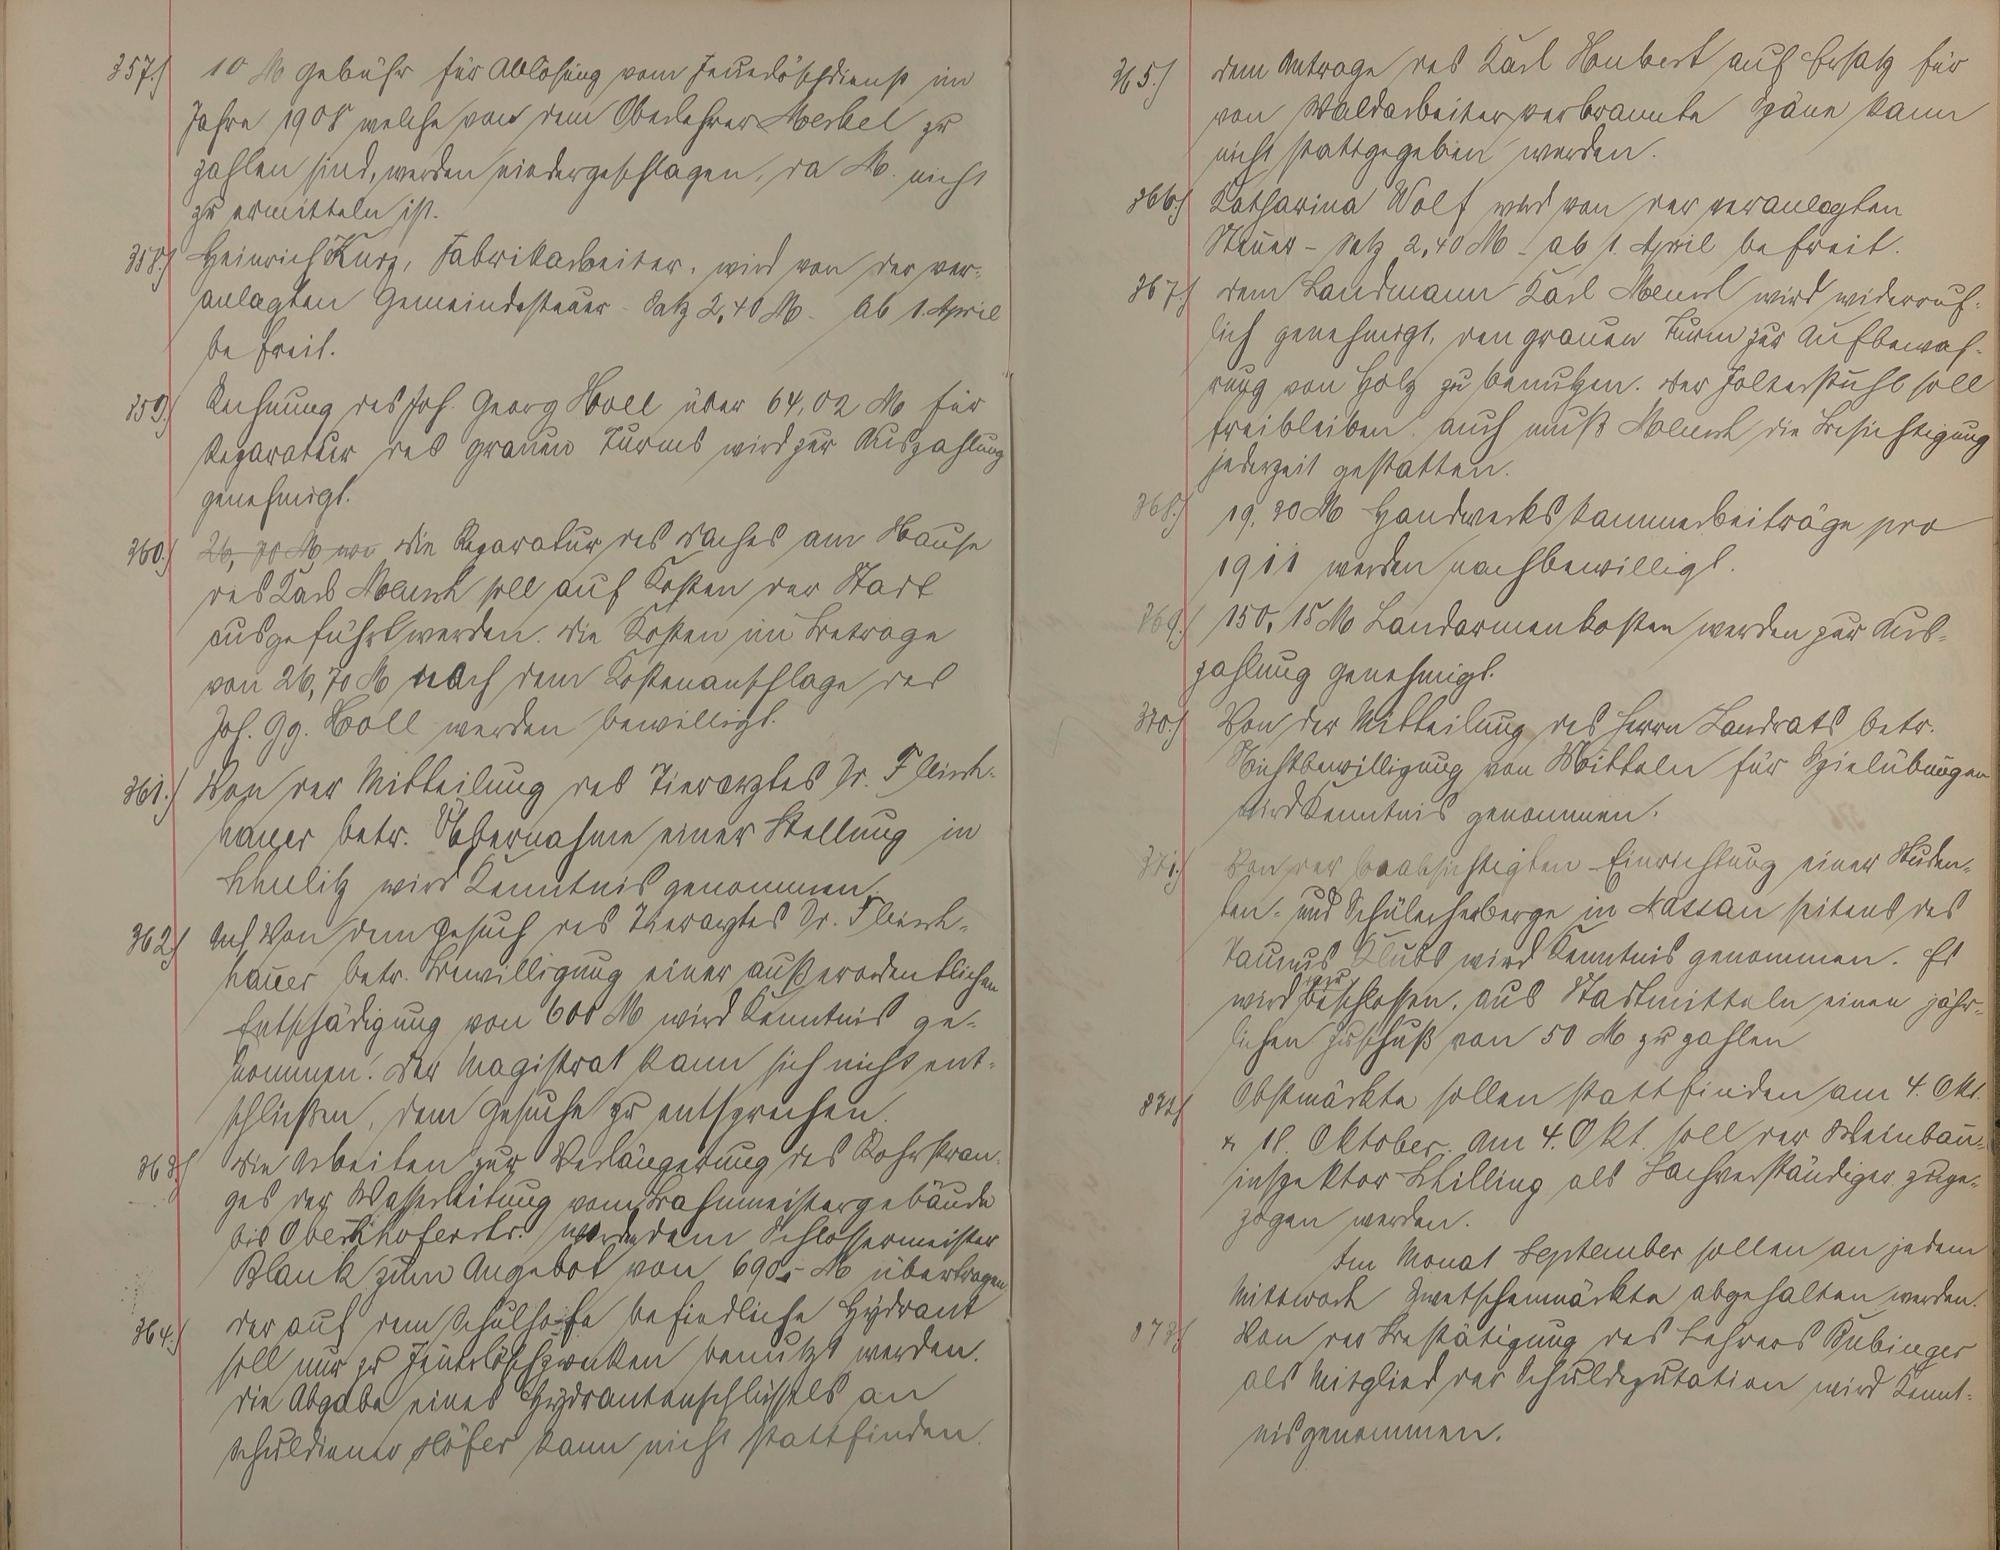 357.) 10 M Gebühr für Ablösung vom Feuerlöschdienst im
Jahre 1908 welche von dem Oberlehrer Merkel zu
zahlen sind, werden niedergeschlagen, da M. nicht
zu ermitteln ist.
358.) Heinrich Kurz, Fabrikarbeiter, wird von der ver-
anlagten Gemeindesteuer - Satz 2,40 M - ab 1. April
befreit.
359.) Rechnung des Joh. Georg Holl über 64,02 M für
Reparatur des grauen Turms wird zur Auszahlung
genehmigt.
360.) 26,70 M die Reparatur des Daches am Hause
des Karl Mensch soll auf Kosten der Stadt
ausgeführt werden. Die Kosten im Betrage
von 26,70 M nach dem Kostenanschlage des
Joh. Gg. Holl werden bewilligt.
361.) Von der Mitteilung des Tierarztes Dr. Fleisch-
hauer betr. Übernahme einer Stellung in
wird Kenntnis genommen.
362.) Von dem Gesuch des Tierarztes Dr. Fleisch-
hauer betr. Bewilligung einer außerordentlichen
Entschädigung von 600 M wird Kenntnis ge-
nommen. Der Magistrat kann sich nicht ent-
schließen, dem Gesuche zu entsprechen.
363.) Die Arbeiten zur Verlängerung des Rohrstran-
ges der Wasserleitung vom Bahnmeistergebäude
bis Obernhoferstr. werden dem Schlossermeister
Blank zum Angebot von 690,- M übertragen
364.) Der auf dem Schulhofe befindliche Hydrant
soll nur zu Feuerlöschzwecken benutzt werden.
Die Abgabe eines Hydrantenschlüssels an
Schuldiener Höfer kann nicht stattfinden.
365.) Dem Antrage des Karl Haubert auf Ersatz für
von Waldarbeiter verbrannte Späne kann
nicht stattgegeben werden.
366.) Katharina Wolf wird von der veranlagten
Steuer - Satz 2,40 M - ab 1. April befreit.
367.) Dem Landmann Karl Mensch wird widerruf-
lich genehmigt, den grauen Turm zur Aufbewah-
rung von Holz zu benutzen. Der Folterstuhl soll
freibleiben. auch muß Mensch die Besichtigung
jederzeit gestatten.
368.) 19,20 M Handwerkskammerbeiträge pro
1911 werden nachbewilligt.
369.) 150,15 M Landarmenkosten werden zur Aus-
zahlung genehmigt.
370.) Von der Mitteilung des Herrn Landrats betr.
Nichtbewilligung von Mitteln für Spielübungen
wird Kenntnis genommen.
371.) Von der beabsichtigten Einrichtung einer Studen-
ten- und Schülerherberge in Nassau seitens des
Taunus Klubs wird Kenntnis genommen. Es
wird beschlossen, aus Stadtmitteln einen jähr-
lichen Zuschuß von 50 M zu zahlen
372.) Obstmärkte sollen stattfinden am 4. Okt.
u 18. Oktober. Am 4. Okt. soll der Weinbau-
inspektor Schilling als Sachverständiger zuge-
zogen werden.
Im Monat September sollen an jedem
Mittwoch Zwetschenmärkte abgehalten werden.
373.) Von der Bestätigung des Lehrers Kubinger
als Mitglied der Schuldeputation wird Kennt-
nis genommen.